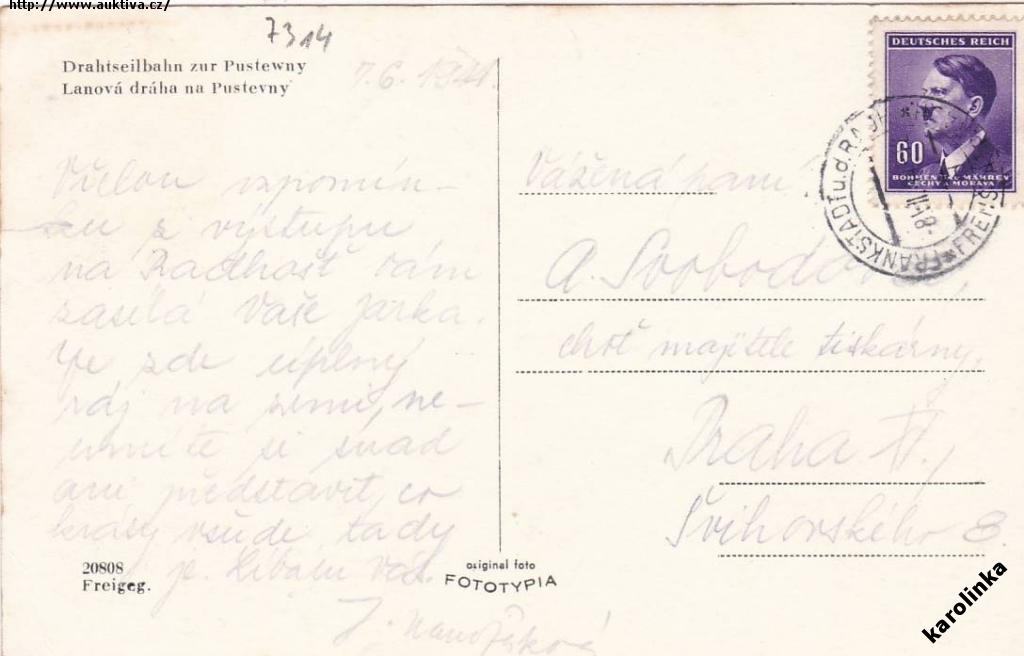 http://www.auktiva.cz/
7314
Drahtseilbahn zur Pustewny
Lanová dráha na Pustevny
7.6.
Vřelou vzpomín-
ku z výstupu
na Radhošť vám
zasílá Vaše Jarka.
Je zde úplný
ráj na zemi, ne-
umíte si snad
ani představit, co
krásy všude tady
je. Líbám Vás.
J.
20808
Freigeg.
original foto
FOTOTYPIA
DEUTSCHES REICH
60
BÖHMEN U. MÄHREN
ČECHY A MORAVA
FRANKSTADT u. d. RADH
Vážená paní
A. Svobodová,
choť majitele tiskárny,
Praha
Švihovského 8.
karolinka